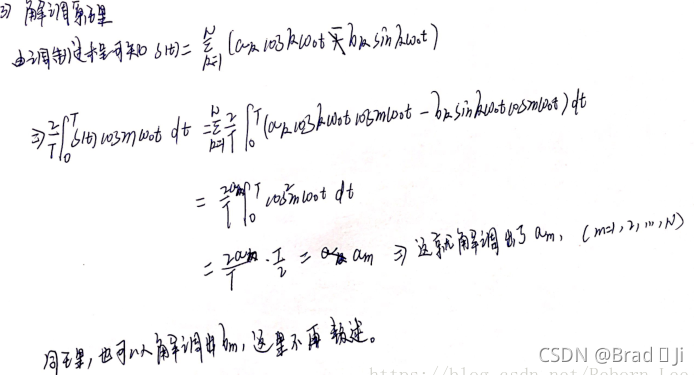 3) 解调原理
由调制过程可知 s(t) = Σ_{k=1}^{N} (a_k cos kω₀t - b_k sin kω₀t)
⇒ 2/T ∫₀^T s(t) cos mω₀t dt = Σ_{k=1}^{N} 2/T ∫₀^T (a_k cos kω₀t cos mω₀t - b_k sin kω₀t cos mω₀t) dt
= 2a_m/T ∫₀^T cos² mω₀t dt
= 2a_m/T · T/2 = a_m ⇒ 这就解调出了 a_m, (m=1, 2, ..., N)
同理, 也可以解调出 b_m, 这里不再赘述。
CSDN @Brad Ji
https://blog.csdn.net/Reborn_Lee